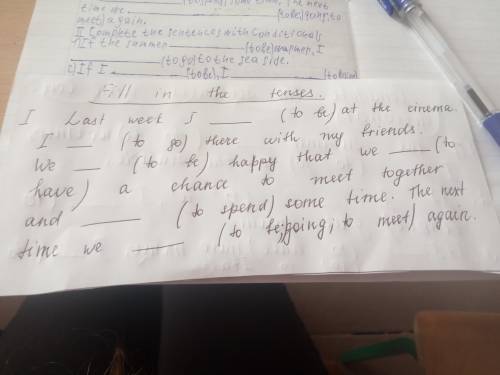 time we ______ (to be) going, to
meet) again.
II Complete the sentences with Conditionals
1) If the summer ______ (to be) warmer, I
______ (to go) to the sea side.
2) If I ______ (to be), I ______
Fill in the tenses.
I Last week I ____ (to be) at the cinema.
I ___ (to go) there with my friends.
We ___ (to be) happy that we ____ (to
have) a chance to meet together
and _____ (to spend) some time. The next
time we _____ (to be; going; to meet) again.